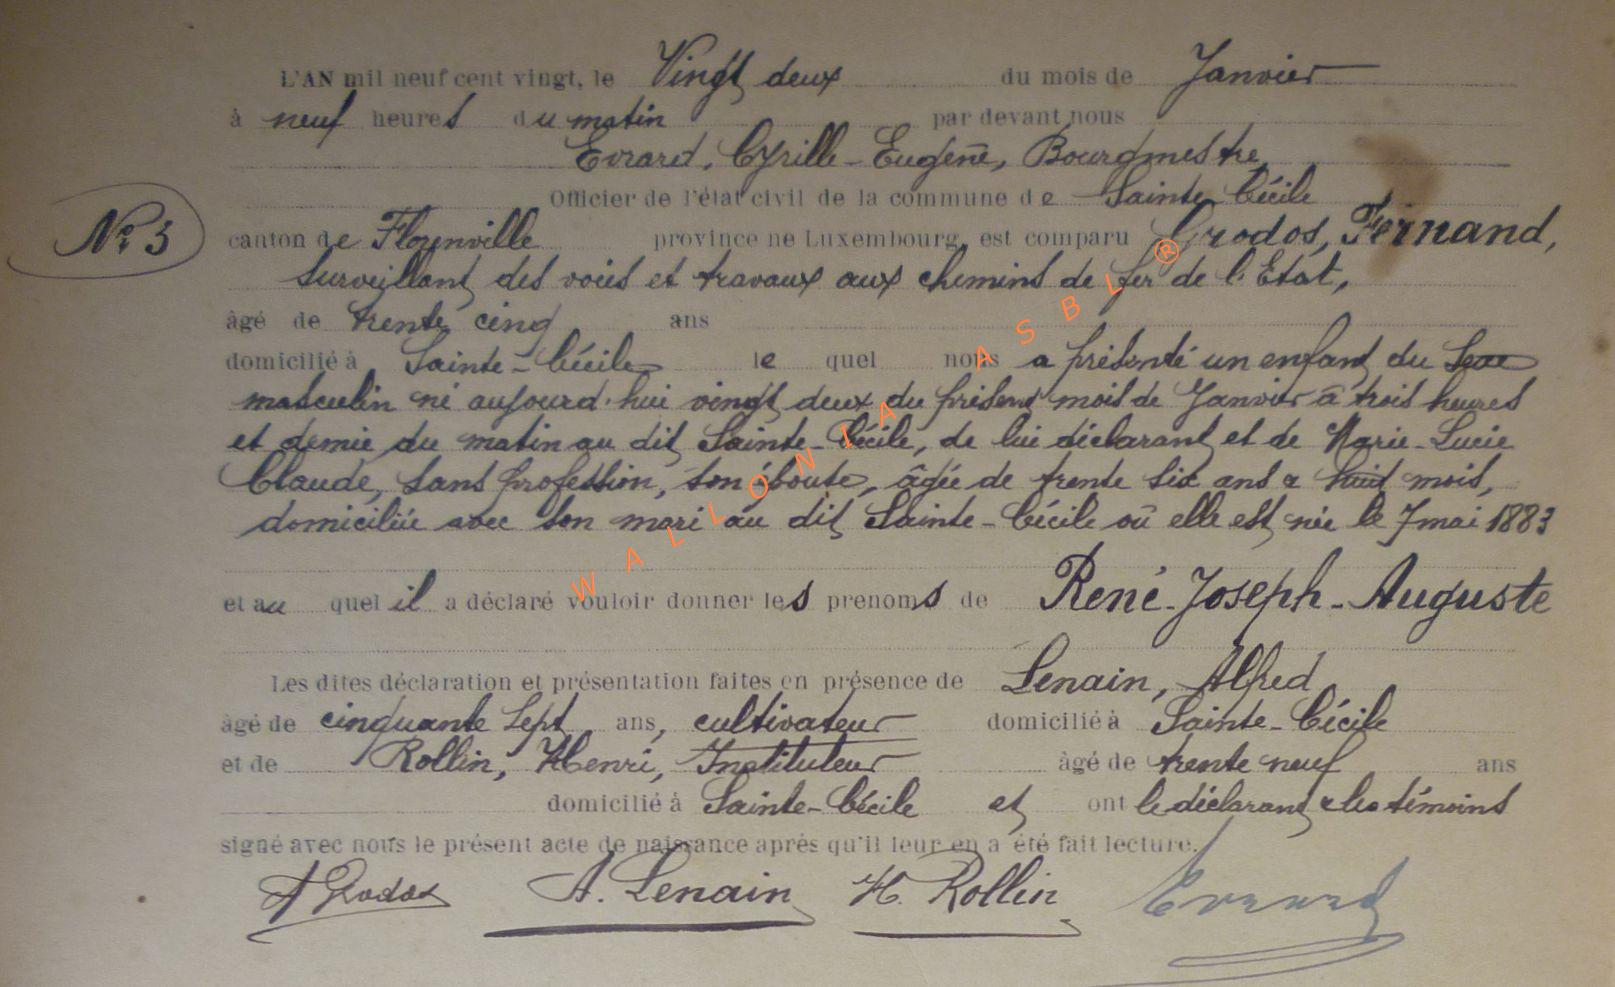 L'AN mil neuf cent vingt, le Vingt deux du mois de Janvier
à neuf heures du matin par devant nous
Evrard, Cyrille-Eugène, Bourgmestre
Officier de l'état civil de la commune de Sainte Cécile
N° 3
canton de Florenville province de Luxembourg, est comparu Grodos, Fernand,
surveillant des voies et travaux aux chemins de fer de l'Etat,
âgé de trente cinq ans
domicilié à Sainte-Cécile le quel nous a présenté un enfant du sexe
masculin né aujourd'hui vingt deux du présent mois de Janvier à trois heures
et demie du matin au dit Sainte-Cécile, de lui déclarant et de Marie-Lucie
Claude, sans profession, son épouse, âgée de trente six ans & huit mois,
domiciliée avec son mari au dit Sainte-Cécile où elle est née le 7 mai 1883
et au quel il a déclaré vouloir donner les prenoms de René-Joseph-Auguste
Les dites déclaration et présentation faites en présence de Lenain, Alfred
âgé de cinquante sept ans, cultivateur domicilié à Sainte-Cécile
et de Rollin, Henri, Instituteur âgé de trente neuf ans
domicilié à Sainte-Cécile et ont le déclarant & les témoins
signé avec nous le présent acte de naissance après qu'il leur en a été fait lecture.
Grodos A. Lenain H. Rollin Evrard
WALLONIA ASBL ®